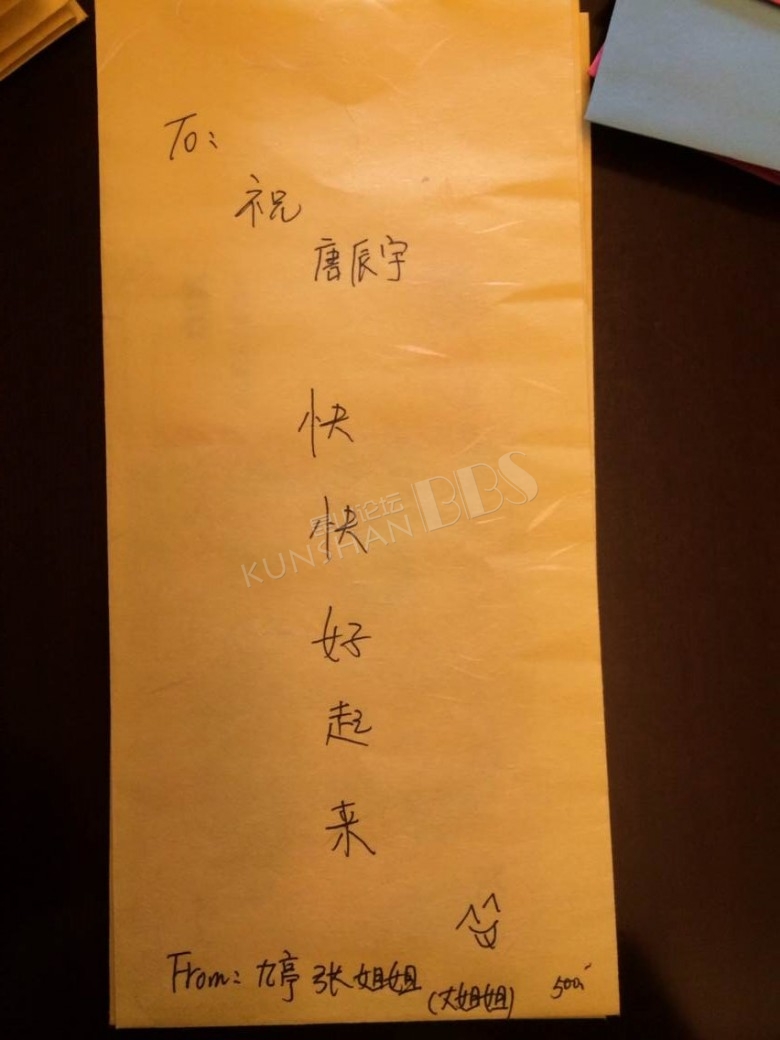 To:
祝
唐辰宇
快
快
好
起
来
昆山论坛
KUNSHAN BBS
From: 九亭 张姐姐
(大姐姐)